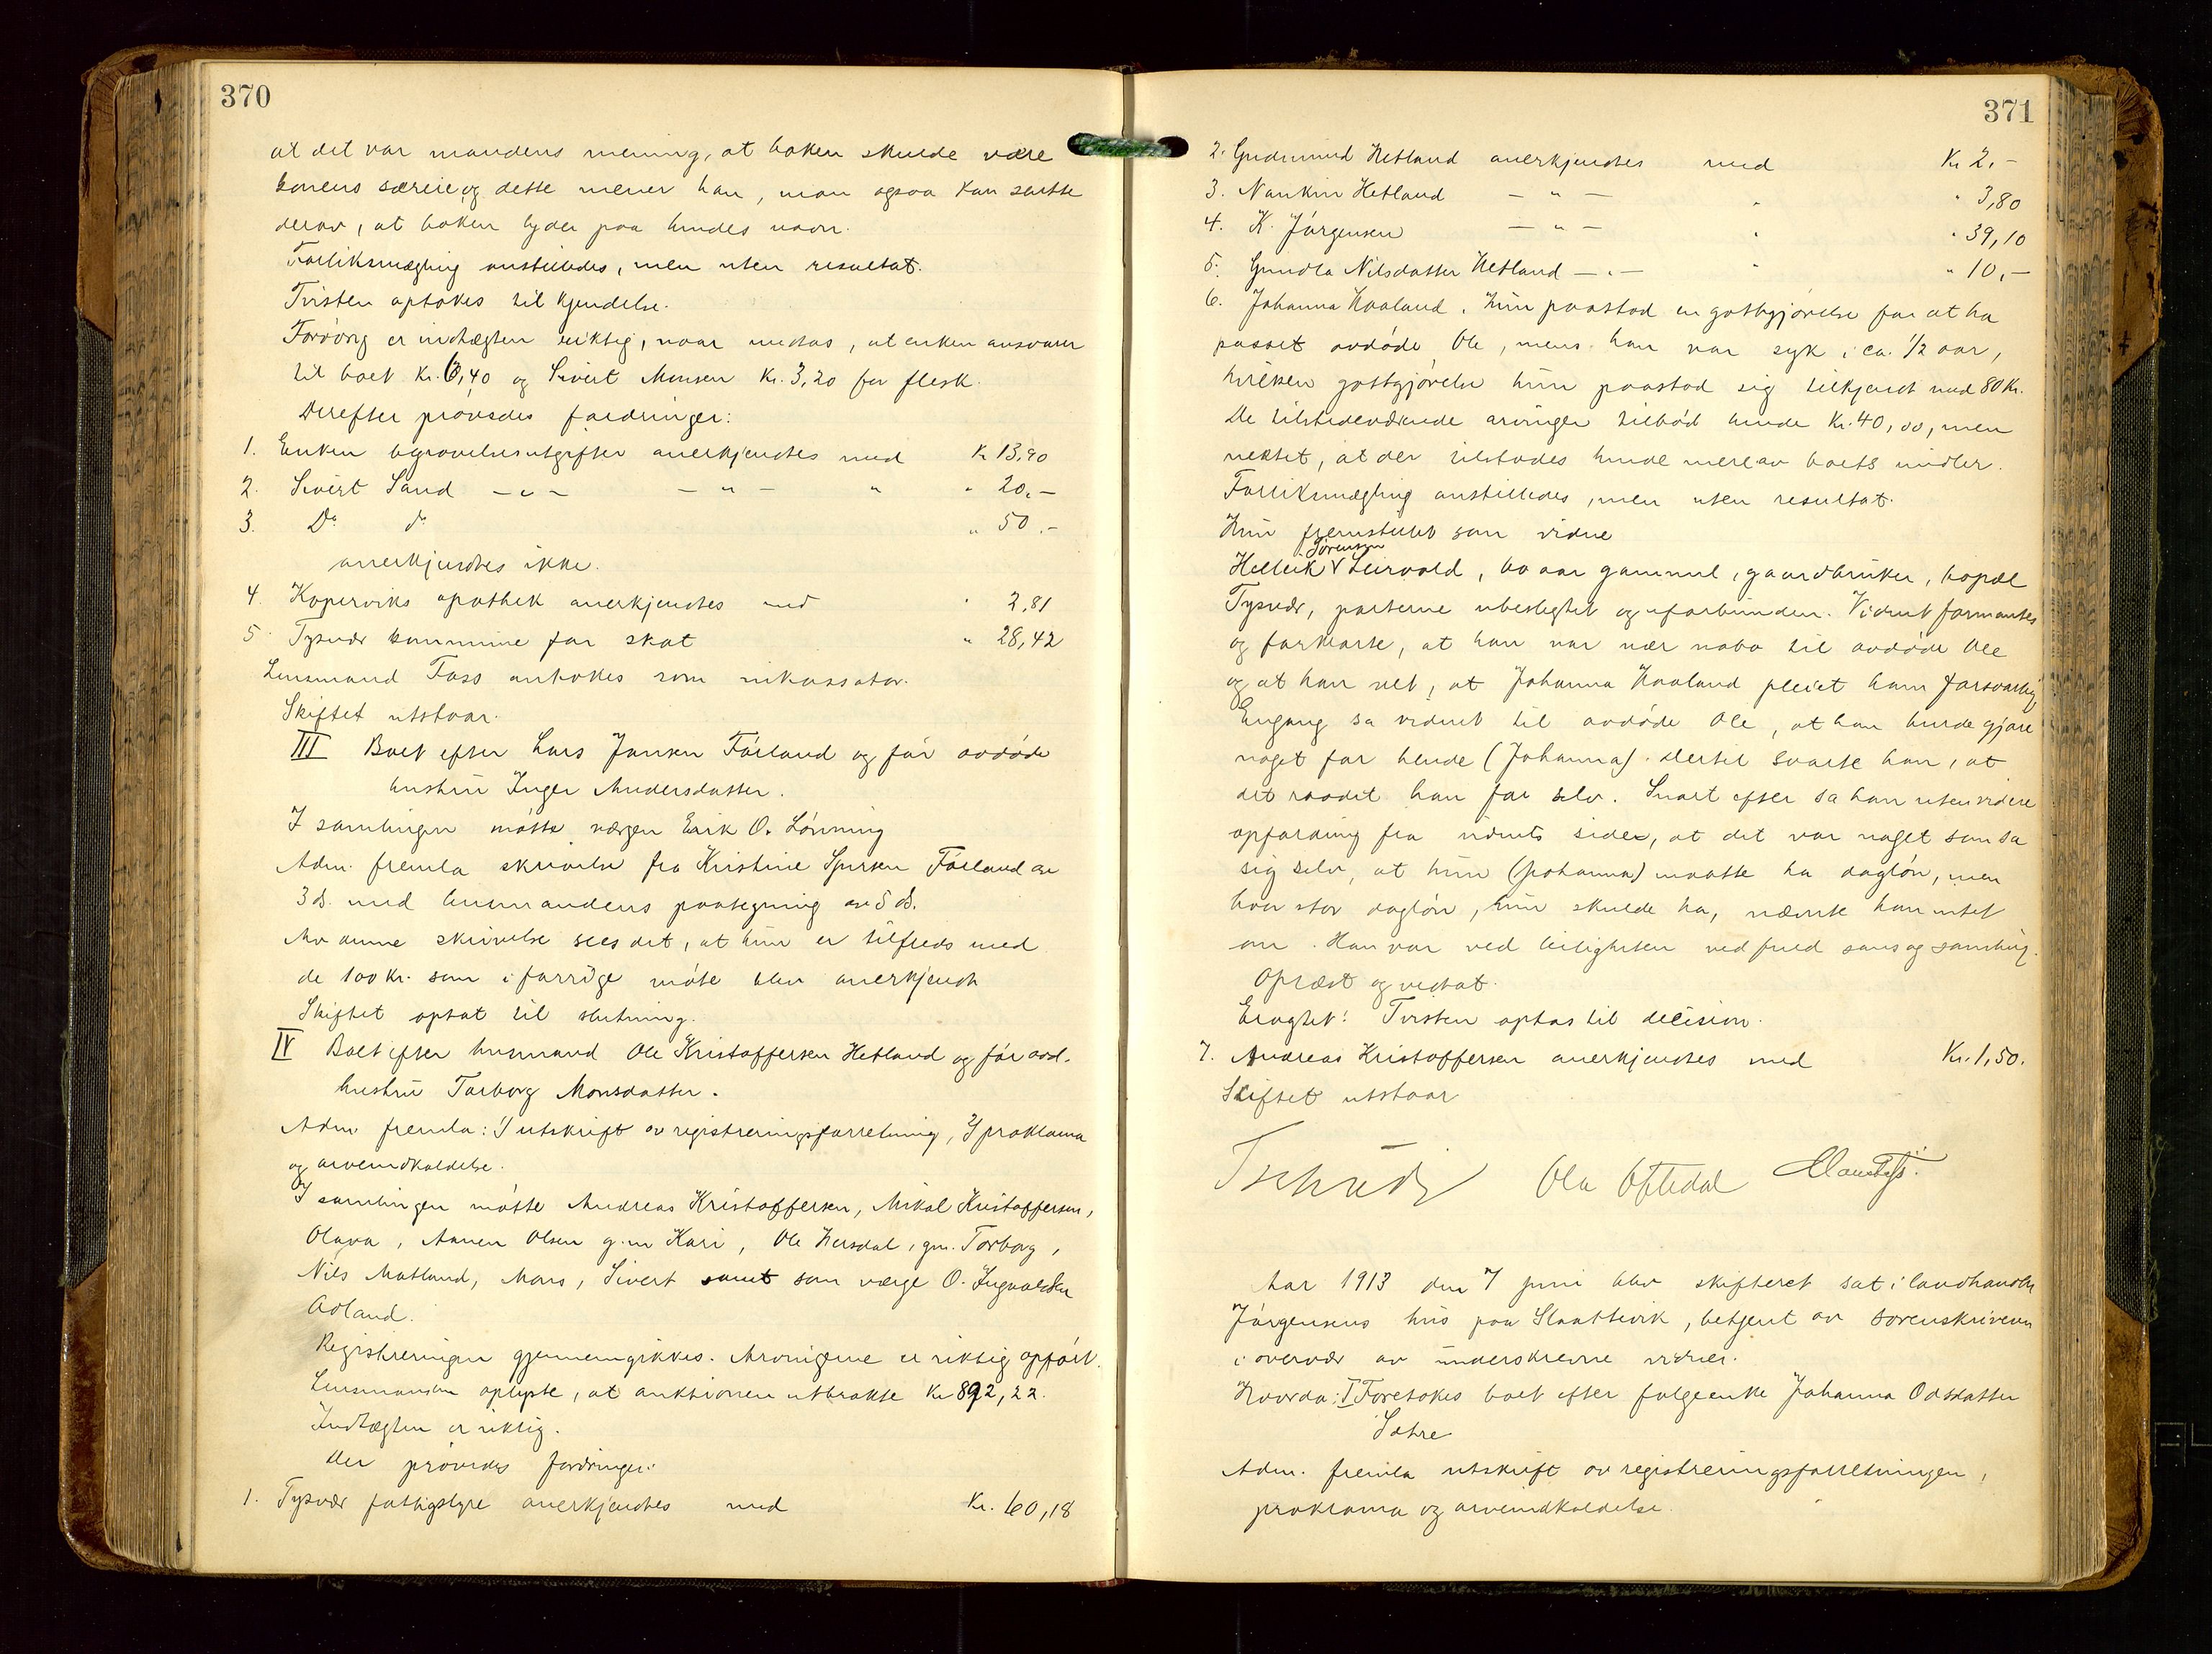 370
at det var mandens mening, at boken skulde være
konens særeie, og dette mener han, man ogsaa kan slutte
derav, at boken lyder paa hendes navn.
Forliksmægling anstilledes, men uten resultat.
Tvisten optokes til kjendelse.
Forøvrig er indtægten riktig, naar undtas, at enken ansvarer
til boet Kr. 6,40 og Sivert Monsen Kr. 3,20 for flesk.
Derefter prøvedes fordringer:
1. Enken begravelsesutgifter anerkjendtes med Kr 13,90
2. Sivert Sand — " — — " — " " 20,-
3. Do do " 50.-
anerkjendtes ikke.
4. Koperviks apothek anerkjendtes med " 2,81
5 Tysvær kommune for skat " 28,42
Lensmand Fass antokes som inkassator.
Skiftet utstaar.
III Boet efter Lars Jansen Førland og før avdøde
hustru Inger Andersdatter.
I samlingen møtte vergen Erik O. Lønning
Adm. fremla skrivelse fra Kristine Førland av
3 ds. med lensmandens paategning av 5 ds.
Av denne skrivelse sees det, at hun er tilfreds med
de 100 Kr. som i forrige møte blev anerkjendt
Skiftet optat til slutning.
IV Boet efter husmand Ole Kristoffersen Hetland og før avd.
hustru Torborg Monsdatter.
Adm. fremla: 1) utskrift av registreringsforretning, 2) proklama
og arveindkaldelse.
I samlingen møtte Andreas Kristoffersen, Mikal Kristoffersen,
Olava, Aanen Olsen g.m Kari, Ole Hersdal, gm. Torborg,
Nils Matland, Mons, Sivert samt som værge O. Ingvaldsen
Aoland.
Registreringen gjennemgikkes. Arvingerne er riktig opført.
Lensmanden oplyste, at auktionen utbrakte Kr 892,22.
Indtægten er riktig.
Der prøvedes fordringer:
1. Tysvær fattigstyre anerkjendtes med Kr. 60,18
371
2. Gudmund Hetland anerkjendtes med Kr 2.-
3. Hetland — " — " " 3,80
4. K. Jørgensen — " — " " 39,10
5. Gundla Nilsdatter Hetland — " — " " 10,-
6. Johanna Haaland. Hun paastod en gotgjørelse for at ha
passet avdøde Ole, mens han var syk i ca. 1/2 aar,
hvilken gotgjørelse hun paastod sig tilkjendt med 80 Kr.
De tilstedeværende arvinger tilbød hende Kr. 40,00, men
nektet, at der tilstodes hende mere av boets midler.
Forliksmægling anstilledes, men uten resultat.
Hun fremstillet som vidne
Sørensen
Hellik V Leirvold, 60 aar gammel, gaardbruker, bopæl
Tysvær, parterne ubeslegtet og uforbunden. Vidnet formantes
og forklarte, at han var nær nabo til avdøde Ole
og at han vet, at Johanna Haaland pleiet ham forsvarlig.
Engang sa vidnet til avdøde Ole, at han burde gjøre
noget for hende (Johanna). Dertil svarte han, at
det raadet han for selv. Snart efter sa han uten videre
opfordring fra vidnets side, at det var noget som sa
sig selv, at hun (Johanna) maatte ha dagløn, men
hvor stor dagløn, hun skulde ha, nævnte han intet
om. Han var ved leiligheten ved fuld sans og samling.
Oplæst og vedtat.
Eragtet: Tvisten optas til decision.
7. Andreas Kristoffersen anerkjendtes med Kr. 1,50.
Skiftet utstaar
Tschudi Ola Oftedal
Aar 1913 den 7 juni blev skifteret sat i landhandler
Jørgensens hus paa Slaattevik, betjent av sorenskriveren
i overvær av underskrevne vidner.
Hvorda: I Foretokes boet efter følgeenke Johanna Odsdatter
Sæbre
Adm. fremla utskrift av registreringsforretningen,
proklama og arveindkaldelse.